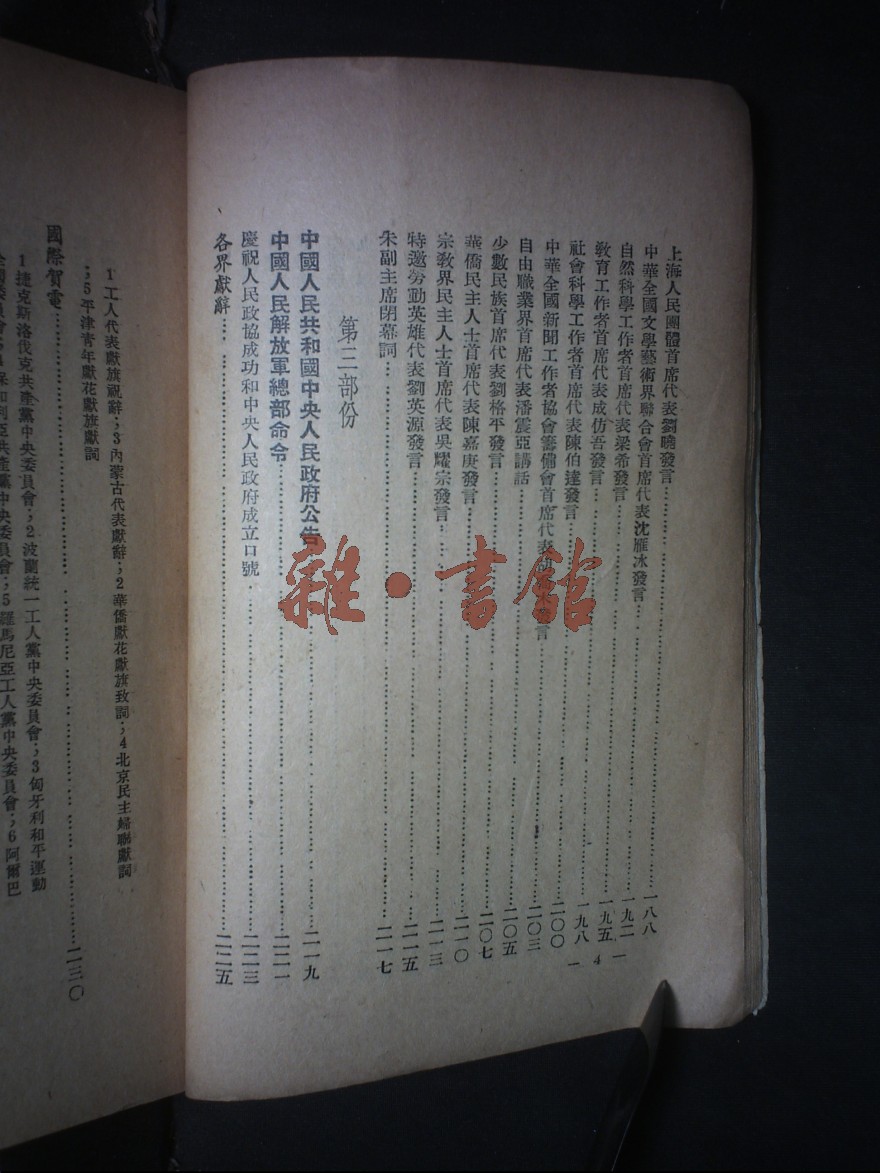 上海人民團體首席代表劉曉發言……一八八
中華全國文學藝術界聯合會首席代表沈雁冰發言……一九二
自然科學工作者首席代表梁希發言……一九五
教育工作者首席代表成仿吾發言……一九八
社會科學工作者首席代表陳伯達發言……二〇〇
中華全國新聞工作者協會籌備會首席代表胡發言……二〇三
自由職業界首席代表潘震亞講話……二〇五
少數民族首席代表劉格平發言……二〇七
華僑民主人士首席代表陳嘉庚發言……二一〇
宗教界民主人士首席代表吳耀宗發言……二一三
特邀勞動英雄代表劉英源發言……二一五
朱副主席閉幕詞……二一七
第三部份
中國人民共和國中央人民政府公告……二一九
中國人民解放軍總部命令……二二一
慶祝人民政協成功和中央人民政府成立口號……二二三
各界獻辭……二二五
— 4 —
1工人代表獻旗祝辭；3內蒙古代表獻辭；2華僑獻花獻旗致詞；4北京民主婦聯獻詞
；5平津青年獻花獻旗獻詞
國際賀電……二三〇
1捷克斯洛伐克共產黨中央委員會；2波蘭統一工人黨中央委員會；3匈牙利和平運動
全國委員會；4保加利亞共產黨中央委員會；5羅馬尼亞工人黨中央委員會；6阿爾巴
雜·書館